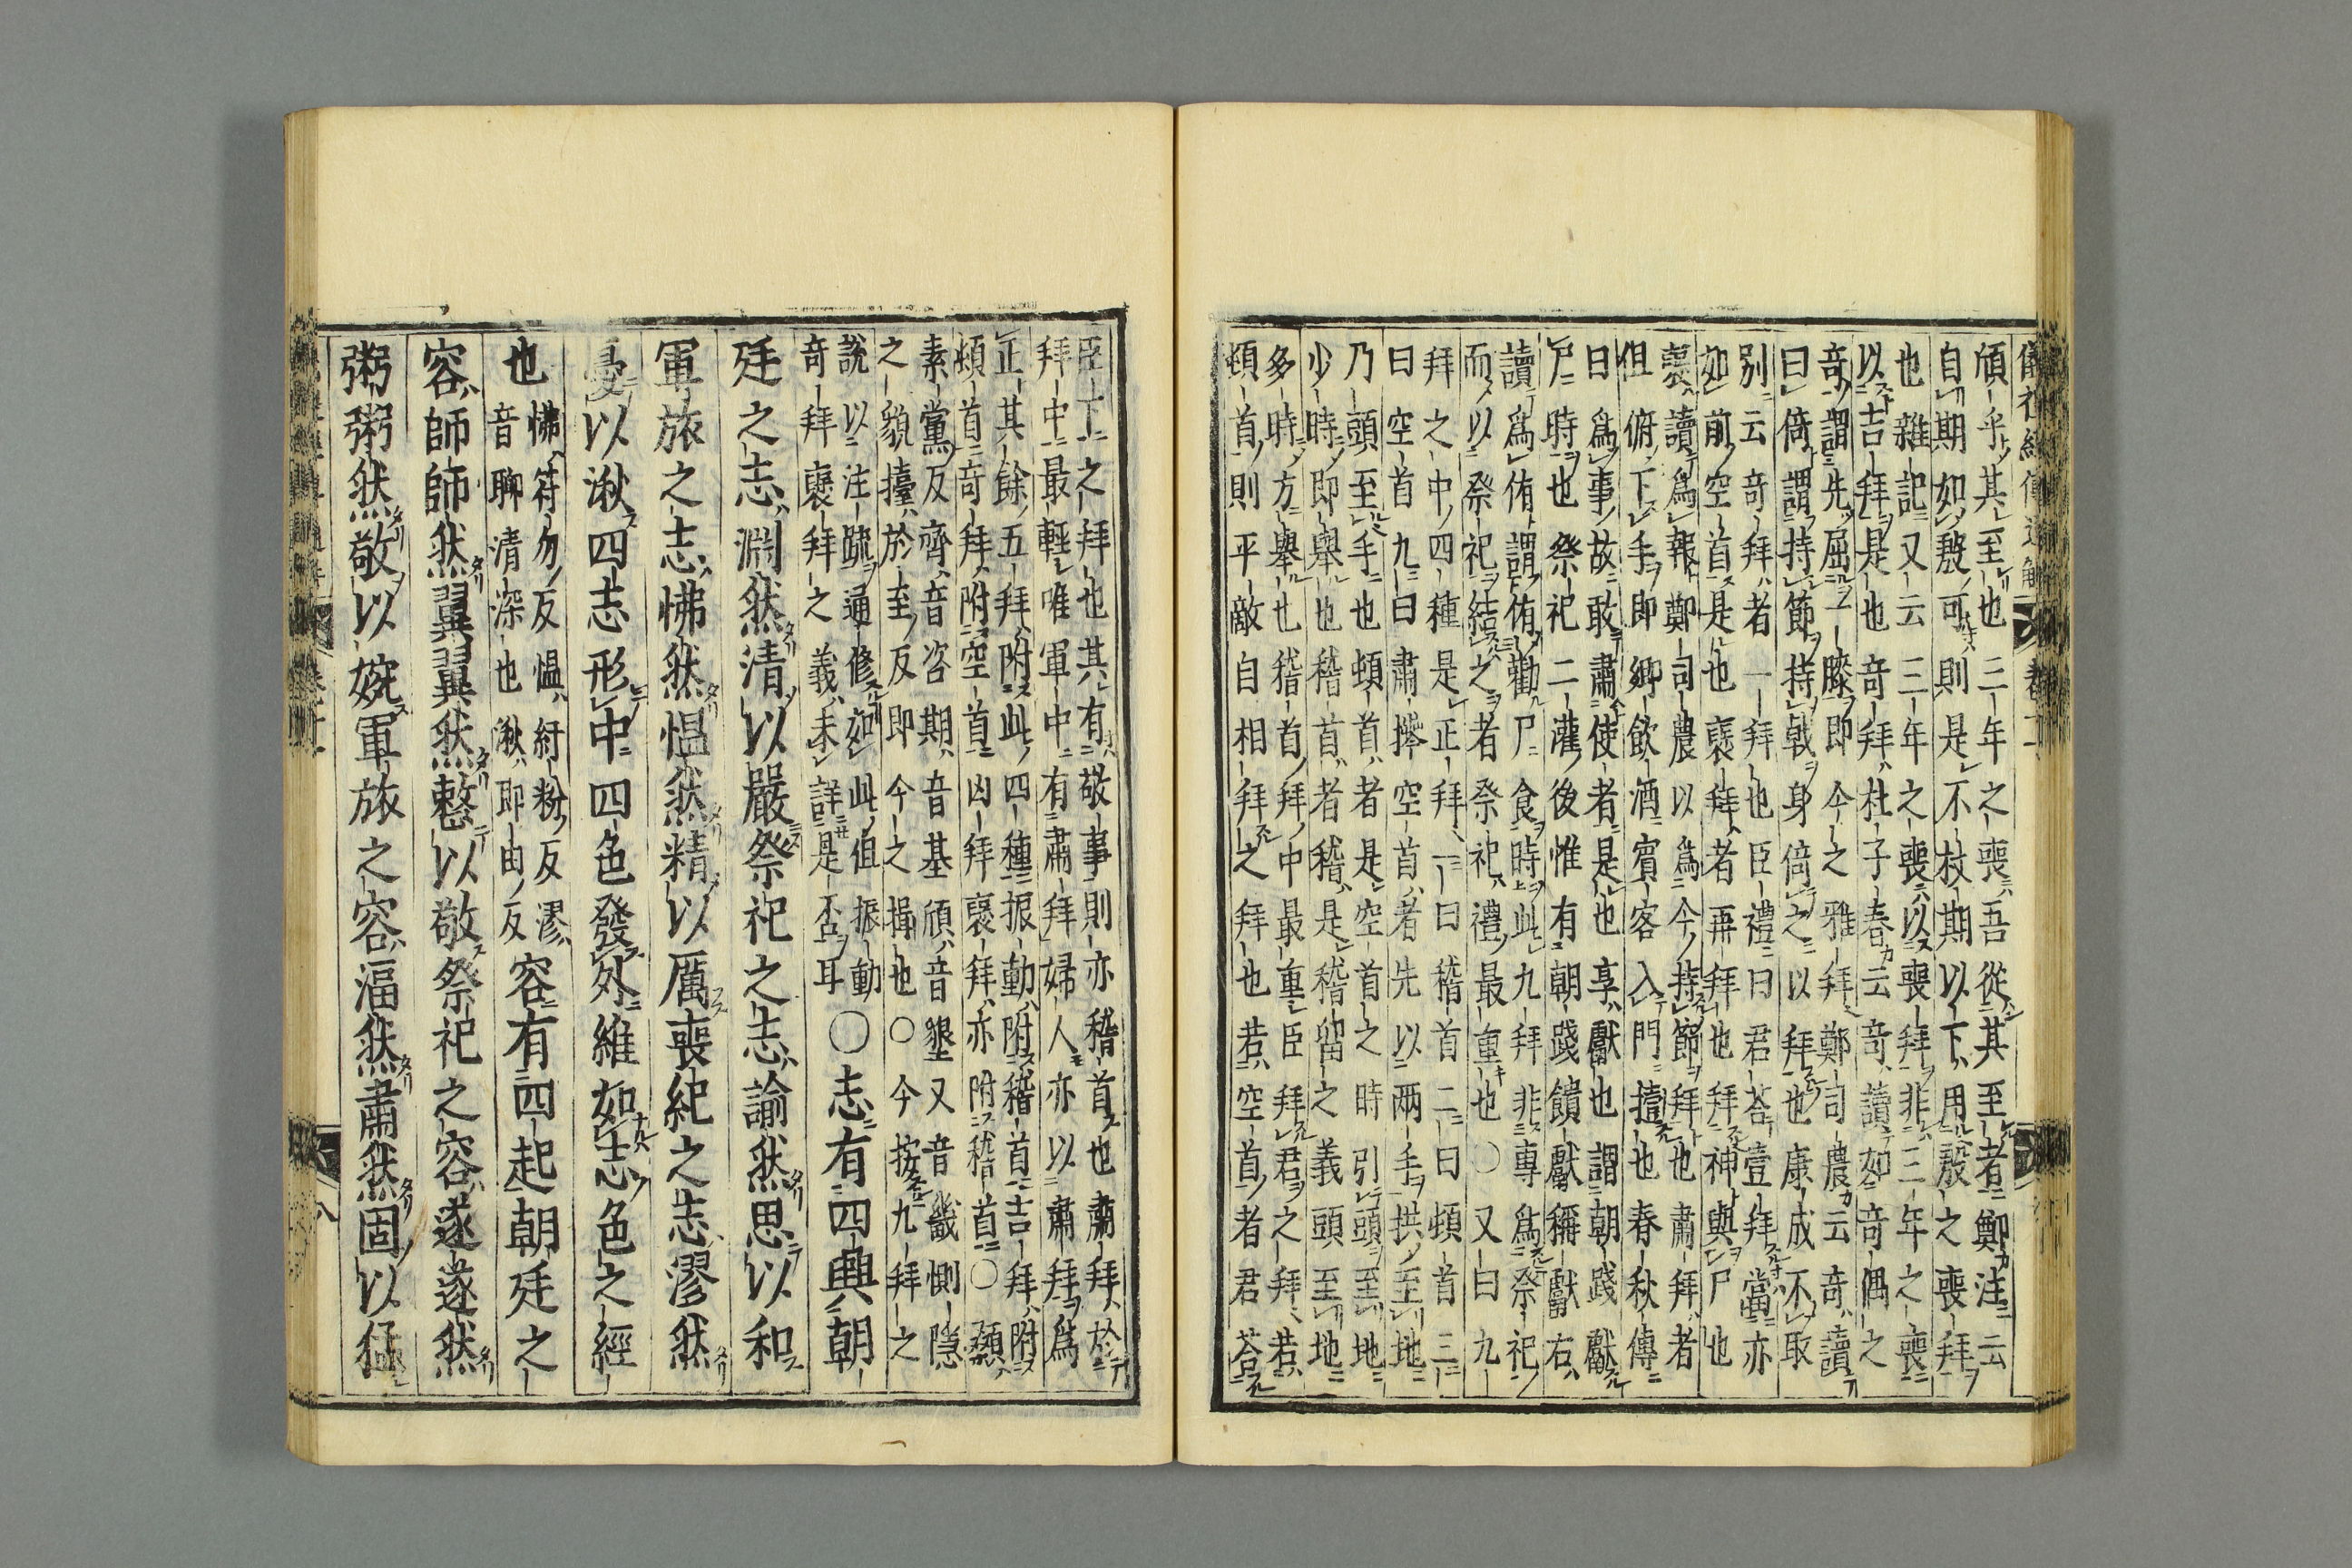 儀禮經傳通解 卷十一
頎乎其至也三年之喪吾從其至者鄭注云
自期如殷可則是不杖期以下用殷之喪拜
也雜記又云三年之喪以喪拜非三年之喪
以吉拜是也奇拜杜子春云奇讀如奇偶之
奇謂先屈一膝即今之雅拜鄭司農云奇讀
曰倚謂持節持戟身倚之以拜也康成不取
別云奇拜者一拜也臣禮曰君荅壹拜當亦
如前空首是也褒拜者再拜也拜神與尸也
褒讀為報鄭司農以為今持節拜也肅拜者
但俯下手即鄉飲酒賓客入門撎也春秋傳
曰為事故敢肅使者是也享獻也謂朝踐獻
尸時也祭祀二灌後惟有朝踐饋獻稱獻右
讀為侑謂侑勸尸食時此九拜非專為祭祀
而以祭祀結之者祭祀禮最重也〇又曰九
拜之中四種是正拜一曰稽首二曰頓首三
曰空首九曰肅撵空首者先以兩手拱至地
乃頭至手也頓首者是空首之時引頭至地
少時即舉也稽首者稽是稽留之義頭至地
多時方舉也稽首拜中最重臣拜君之拜若
頓首則平敵自相拜之拜也若空首者君荅
臣下之拜也其有敬事則亦稽首也肅拜於
拜中最輕唯軍中有肅拜婦人亦以肅拜為
正其餘五拜附此四種振動附稽首吉拜附
頓首奇拜附空首凶拜褒拜亦附稽首〇顙
素黨反齊音咨期音基頎音墾又音畿惻隱
之貌撎於至反即今之揖也〇今按九拜之
說以注疏通修如此但振動
奇拜褒拜之義未詳是否耳
〇志有四興朝
廷之志淵然清以嚴祭祀之志諭然思以和
軍旅之志怫然慍然精以厲喪紀之志漻然
憂以湫四志形中四色發外維如志色之經
也
怫符勿反慍紆粉反漻
音聊清深也湫即由反
容有四起朝廷之
容師師然翼翼然整以敬祭祀之容遂遂然
粥粥然敬以婉軍旅之容湢然肅然固以猛
八